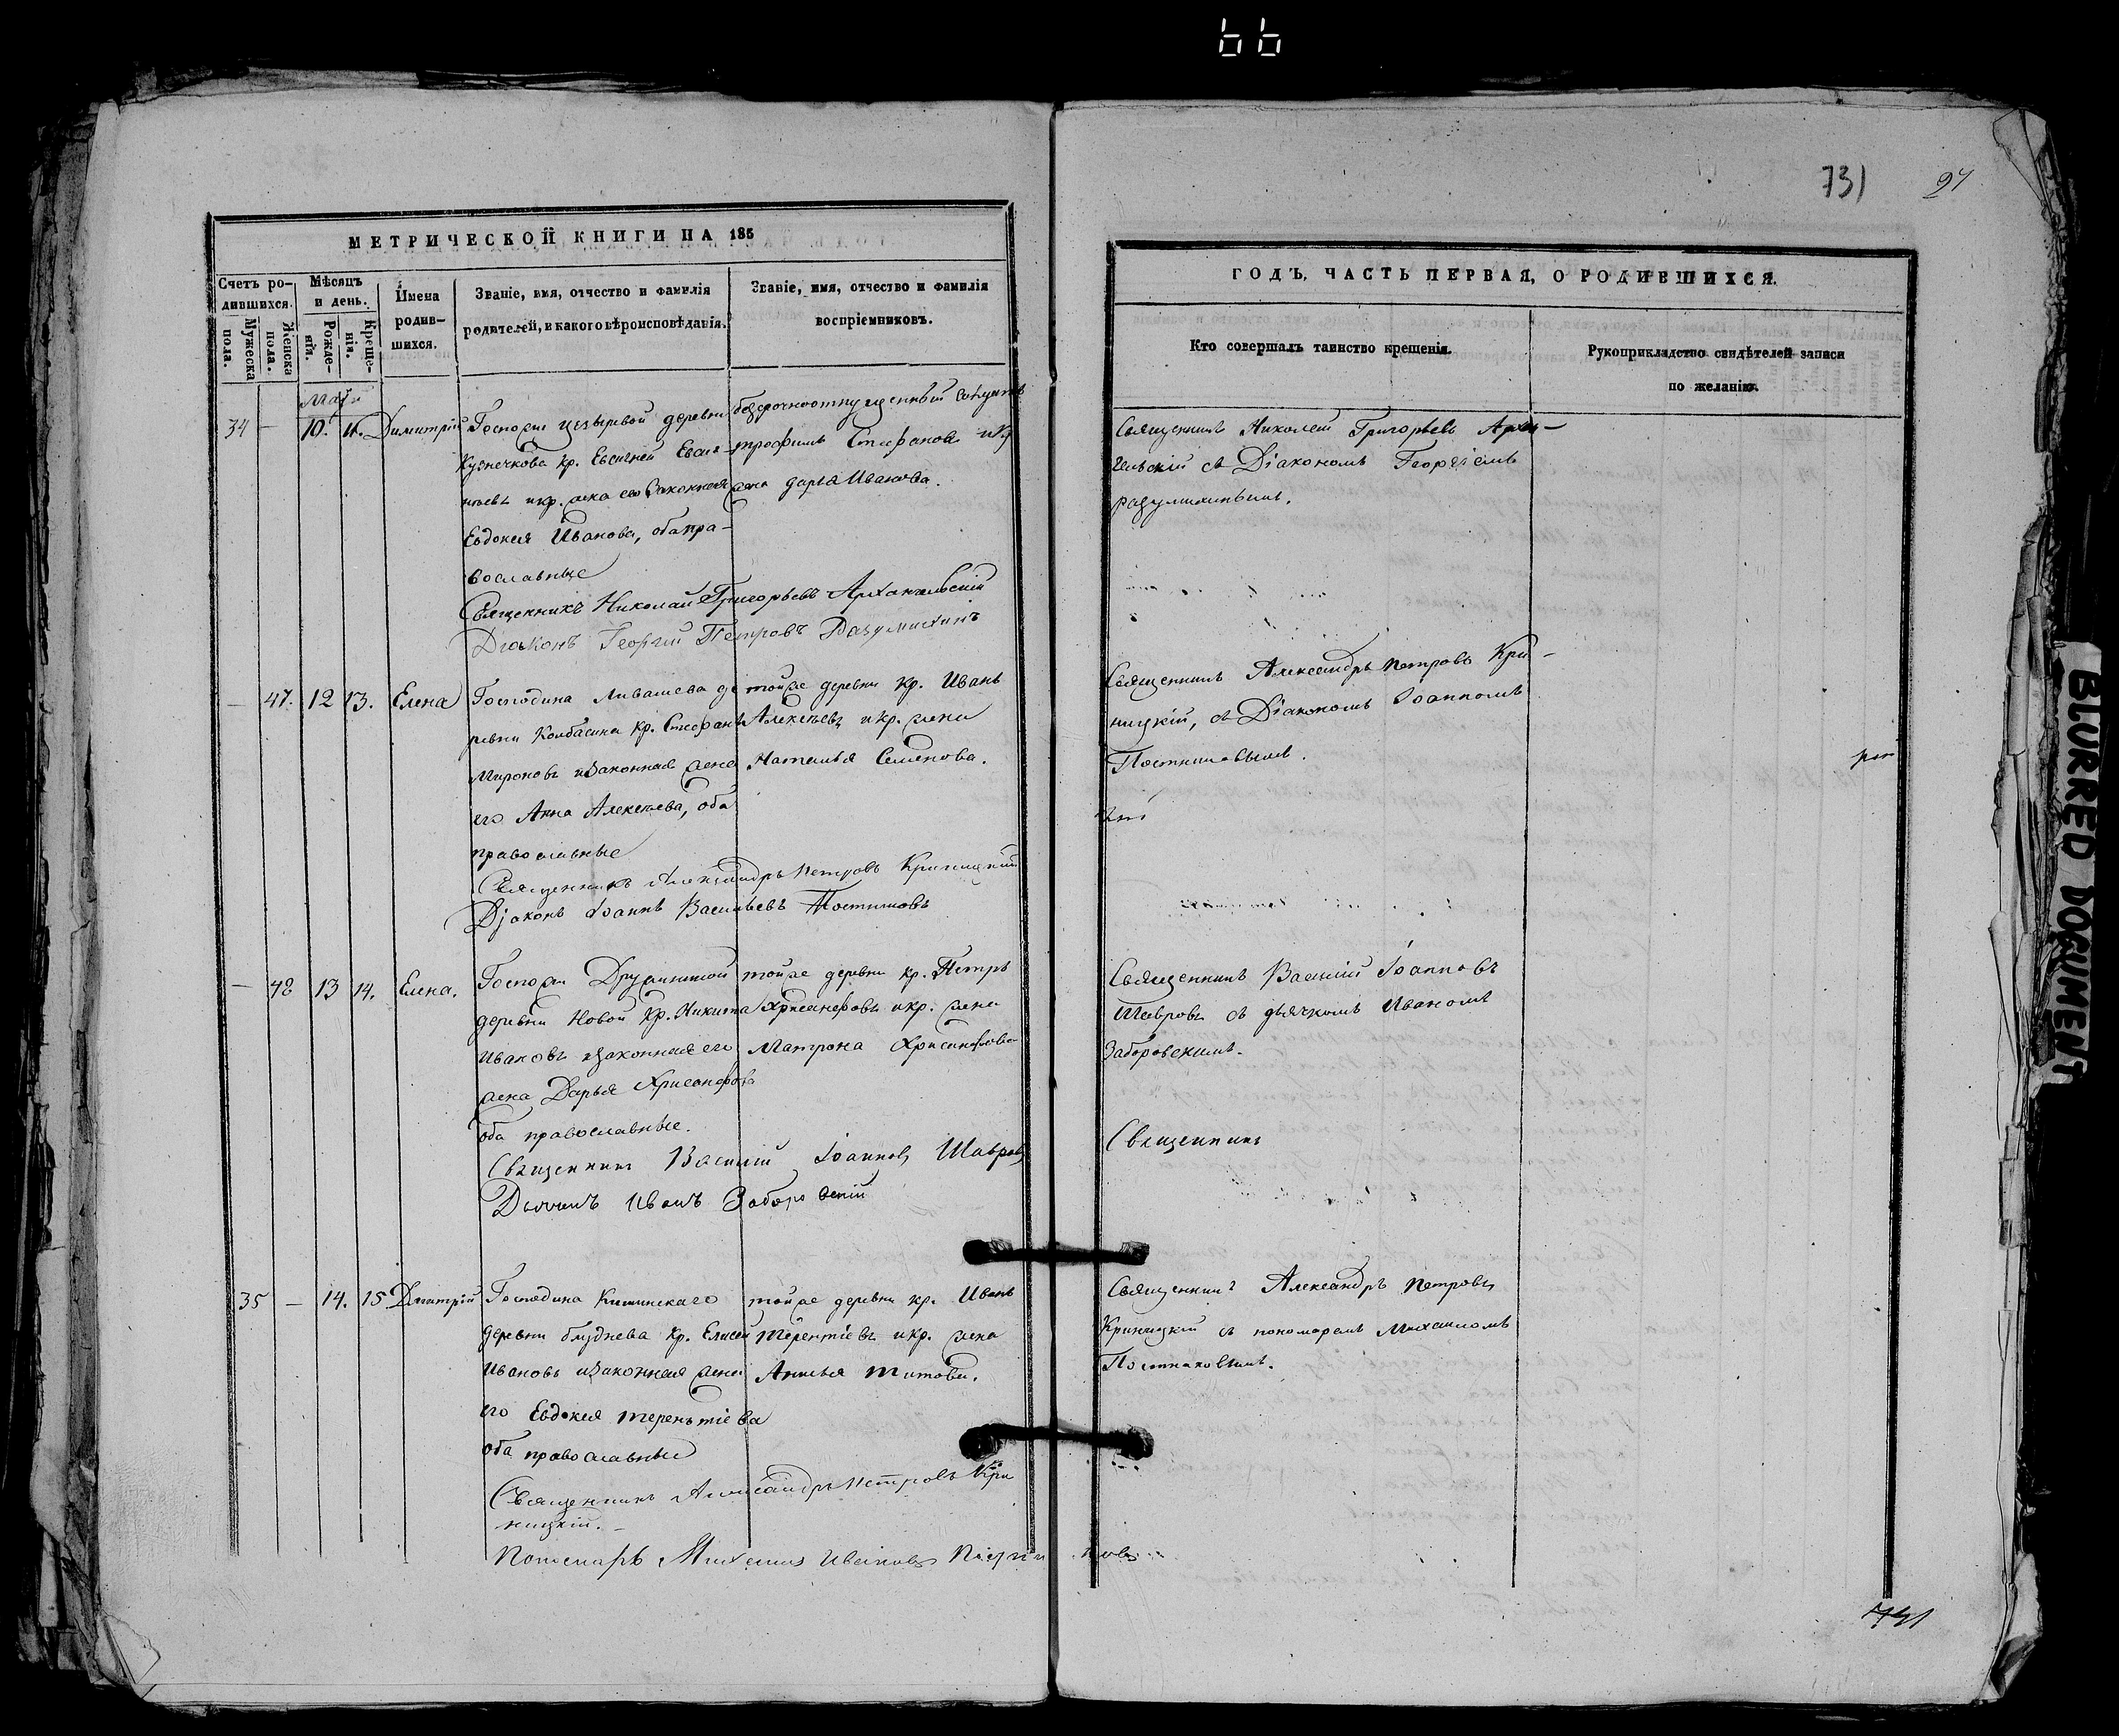 66
731
27
МЕТРИЧЕСКОЙ КНИГИ НА 185
Счетъ ро-
дившихся.
Мужеска
пола.
Женска
пола.
Мѣсяцъ
и день.
Рожде-
нія.
Креще-
нія.
Имена
родив-
шихся.
Званіе, имя, отчество и фамилія
родителей, и какого вѣроисповѣданія.
Званіе, имя, отчество и фамилія
воспріемниковъ.
Маія
34 — 10. 11. Димитрій
Госпожи деревни
Кузнечкова кр. Евсигней
и кр. жена его законная
Евдокия Иванова, оба пра-
вославные
безсрочноотпущенный
трофимъ Стефановъ и кр
жена дарья Иванова.
Священникъ Николай Григорьевъ Архангельскій
Диаконъ Георгий Петровъ Разумихинъ
— 47. 12 13. Елена
Господина Ливашева де
ревни Колбасина кр. Стефанъ
Мироновъ и законная жена
его Анна Алексѣева, оба
православные
тойже деревни кр. Иванъ
Алексѣевъ и кр. жена
Наталья Семенова.
Священникъ Александръ Петровъ Криницкій
Діаконъ Іоаннъ Васильевъ Постниковъ
— 48 13 14. Елена.
Госпожи
деревни Новой кр. Никита
Ивановъ и законная его
жена Дарья Хрисанфова
оба православные.
тойже деревни кр. Петръ
Хрисанфовъ и кр. жена
Матрона Хрисанфова
Священникъ Василій Іоанновъ Шавровъ
Дьячекъ Иванъ Заборовскій
35 — 14. 15 Дмитрій
Господина
деревни кр. Елисей
Ивановъ и законная жена
его Евдокия терентіева
оба православные
тойже деревни кр. Иванъ
терентіевъ и кр. жена
титова.
Священникъ Александръ Петровъ Кри
ницкій.
Пономарь Михаилъ Ивановъ Постниковъ
ГОДЪ, ЧАСТЬ ПЕРВАЯ, О РОДИВШИХСЯ.
Кто совершалъ таинство крещенія.
Рукоприкладство свидѣтелей записи
по желанію.
Священникъ Николай Григорьевъ Архан-
гельскій съ Діакономъ Георгіемъ
разумихинымъ.
Священникъ Александръ Петровъ Кри-
ницкій, съ Діакономъ Іоанномъ
Постниковымъ.
Священникъ Василій Іоанновъ
Шавровъ съ дьячкомъ Иваномъ
Заборовскимъ.
Священникъ
Священникъ Александръ Петровъ
Криницкій съ пономаремъ Михаиломъ
Постниковымъ.
731
BLURRED DOCUMENT